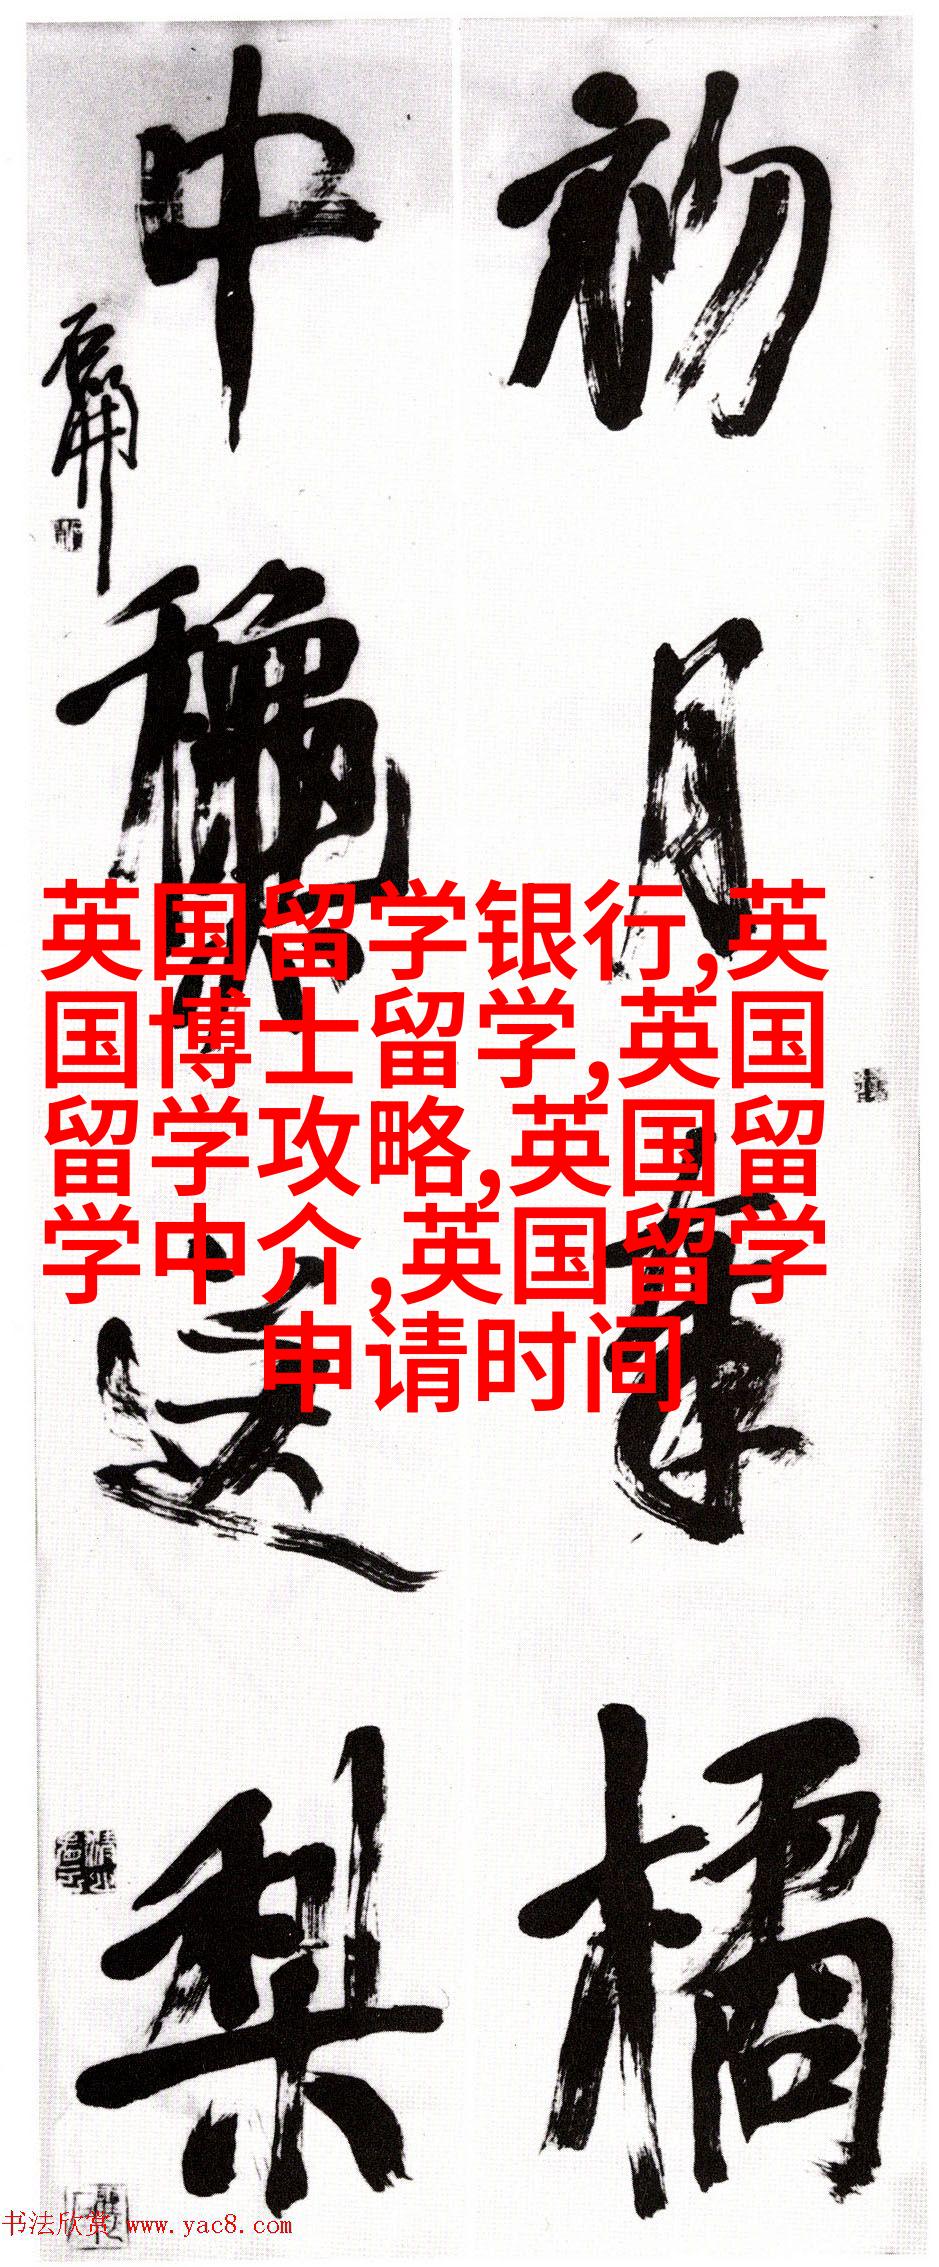 初月橘
中梨
石开
英国留学银行,英
国博士留学,英国
留学攻略,英国留
学中介,英国留学
申请时间
书法欣赏 www.yac8.com